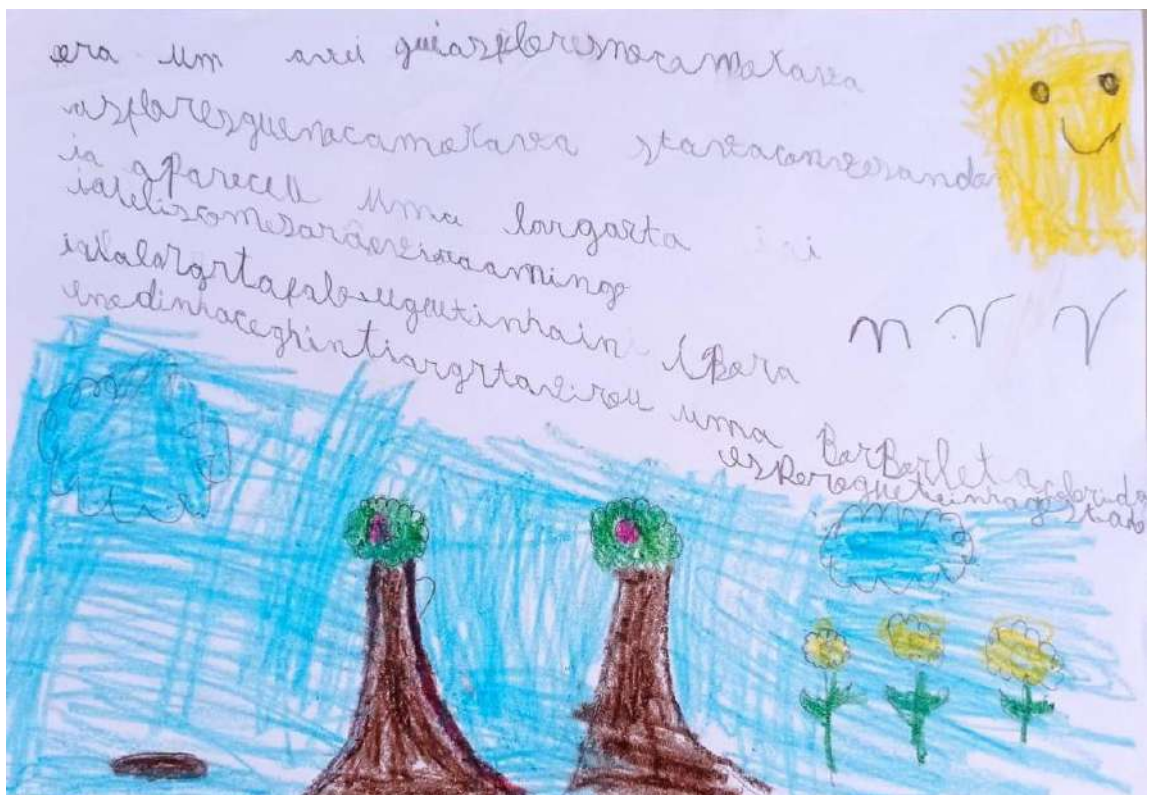 era um avei guiasfloresnocamotava
asfloresguenacamotava stavaconvesando
ia apareceu uma largarta i i
iateliscomesarãoviraamingo
ialalargrtafalougutinhain i Bora
enedinhaceghintiargrtavirou uma BarBarleta colorida
esperogueteinhagostado